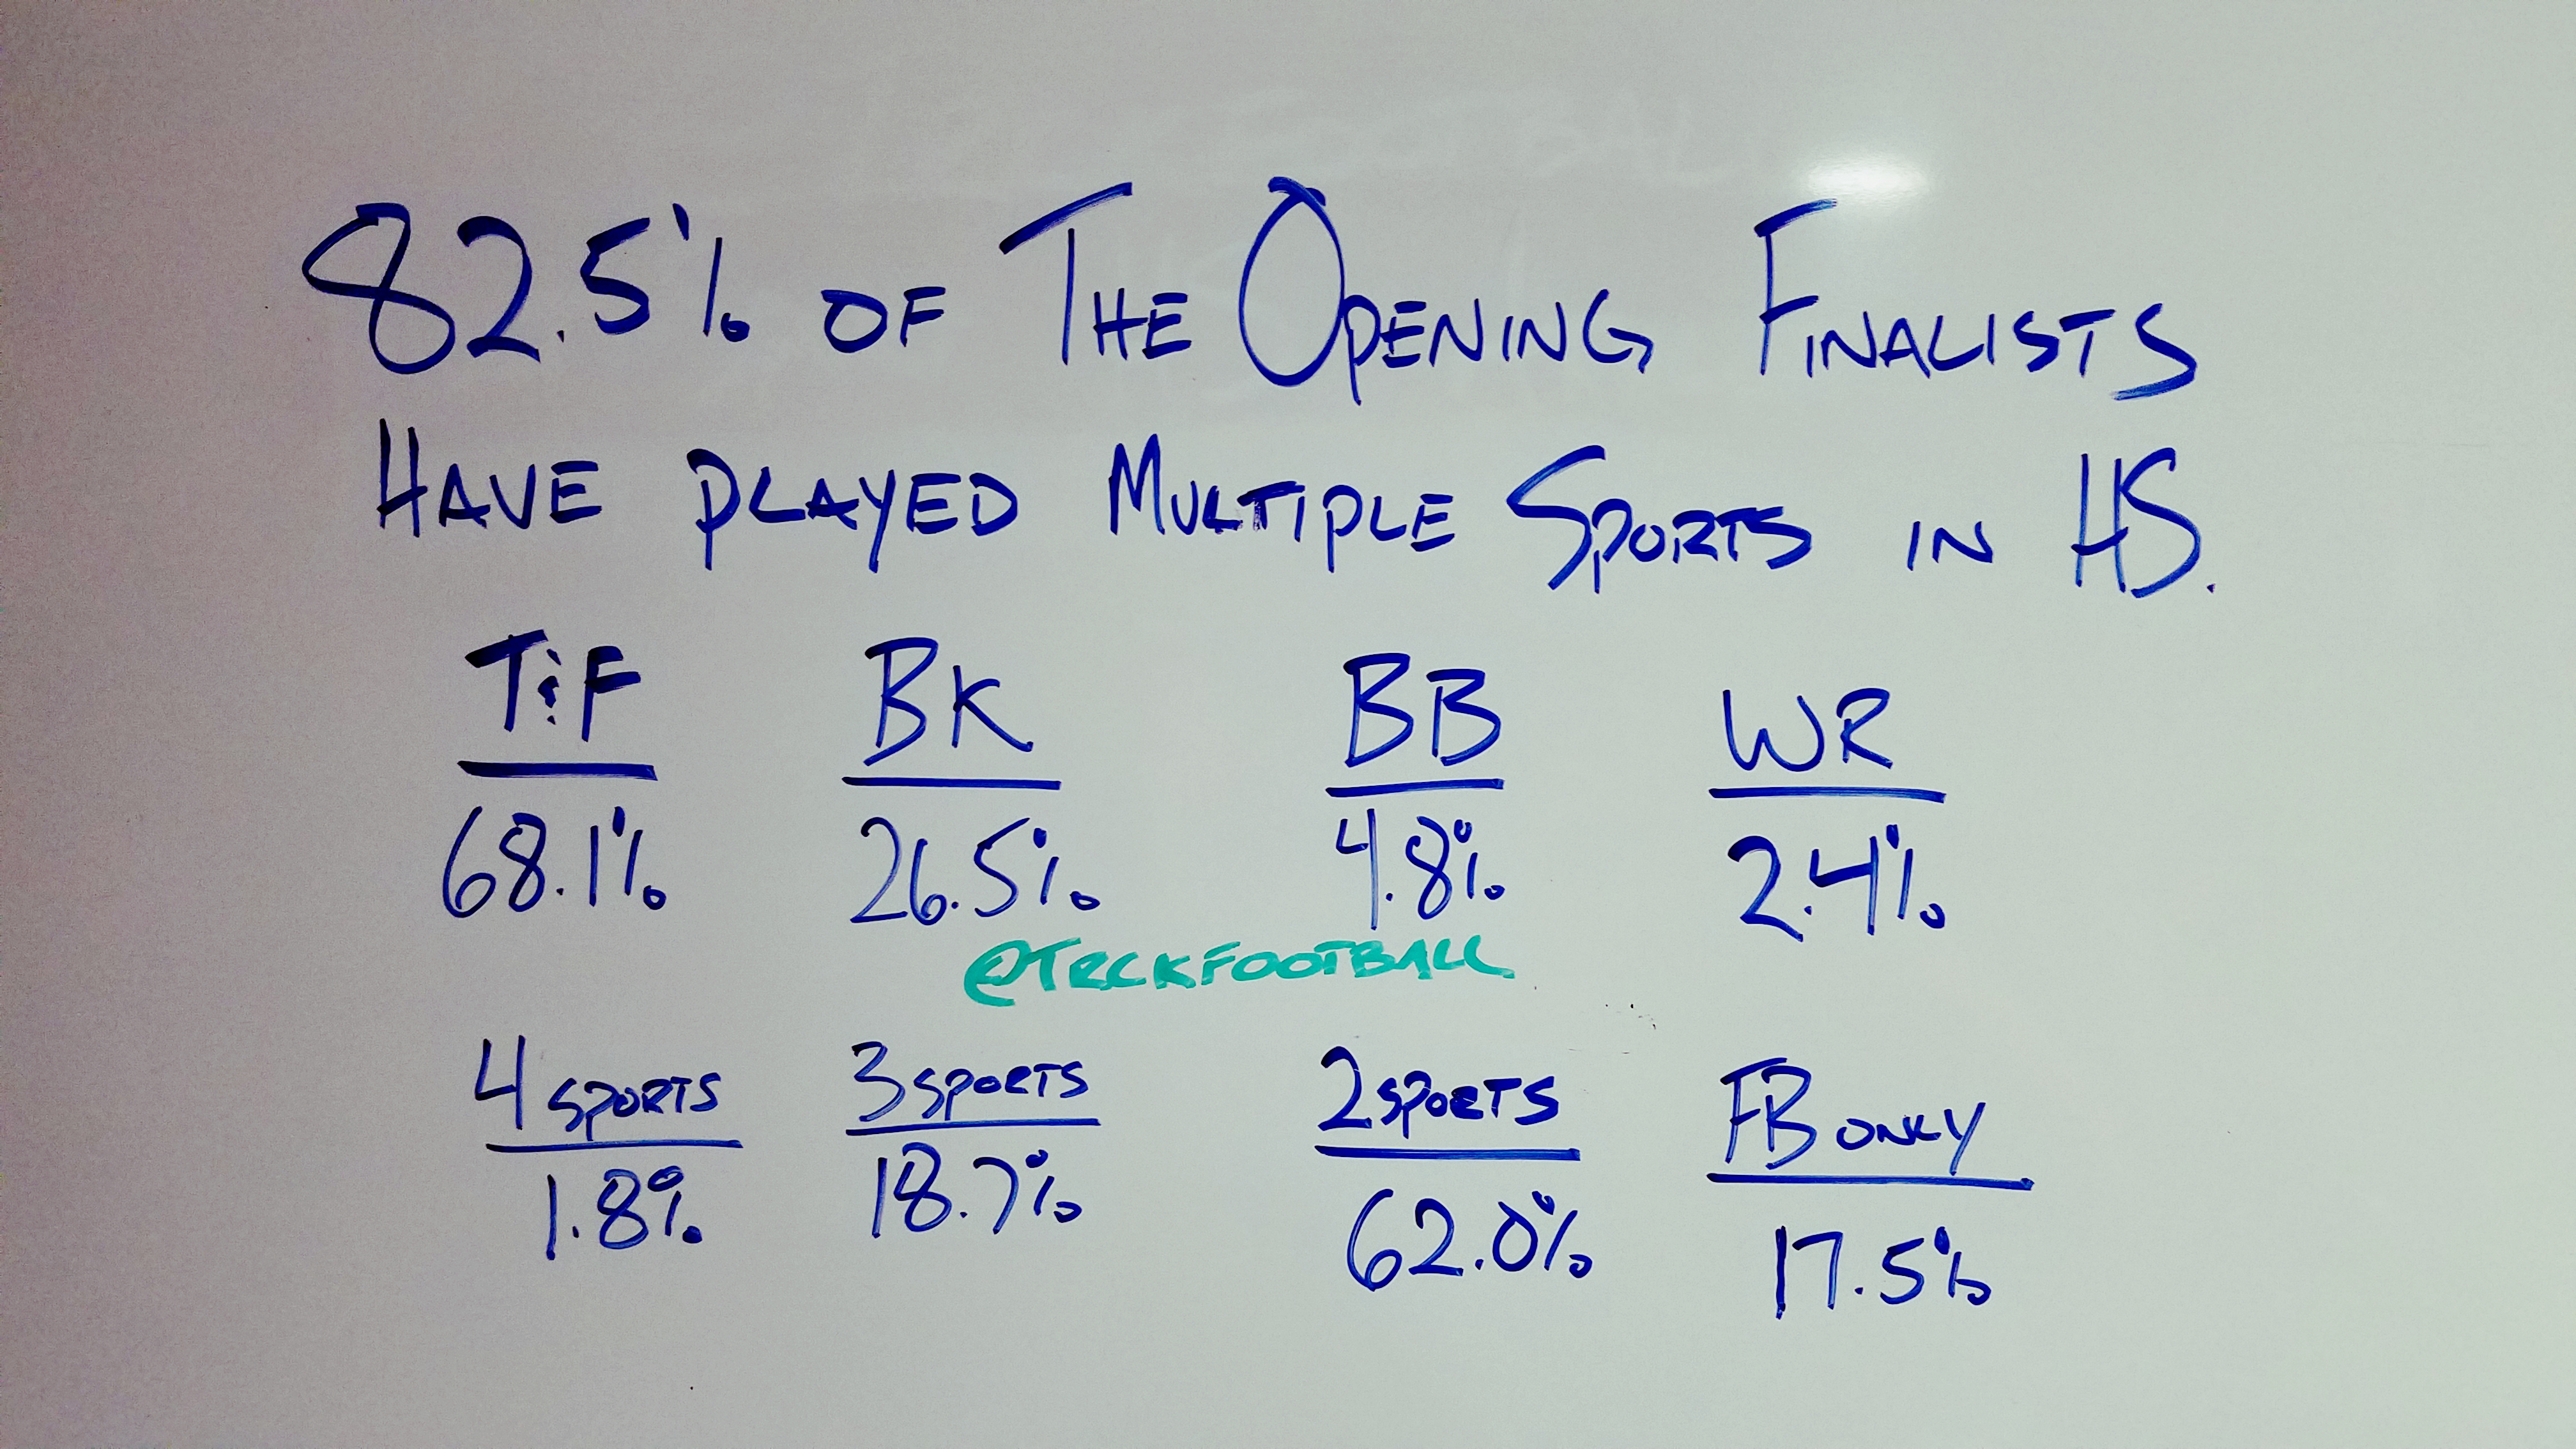 82.5% OF THE OPENING FINALISTS
HAVE PLAYED MULTIPLE SPORTS IN HS.
T&F BK BB WR
68.1% 26.5% 4.8% 2.4%
@TRCKFOOTBALL
4 SPORTS 3 SPORTS 2 SPORTS FB ONLY
1.8% 18.7% 62.0% 17.5%